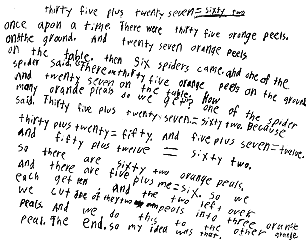 thirty five plus twenty seven = sixty two
once upon a time. There were thirty five orange peels.
on the ground. And twenty seven orange peels
on the table. then six spiders came. and one of the
spider said there are thirty five orange peels on the ground
And twenty seven on the table. How
many orange peals do we get? one of the spider
said. Thirty five plus twenty seven = sixty two. Because
thirty plus twenty = fifty. and five plus seven = twelve.
And fifty plus twelve = sixty two.
So there are sixty two orange peals.
and there are five plus me = six. So we
each get ten And two left over
we cut one of they two peals into three
peals. And we do this to the other orange
peal. The end. so my idea was that.